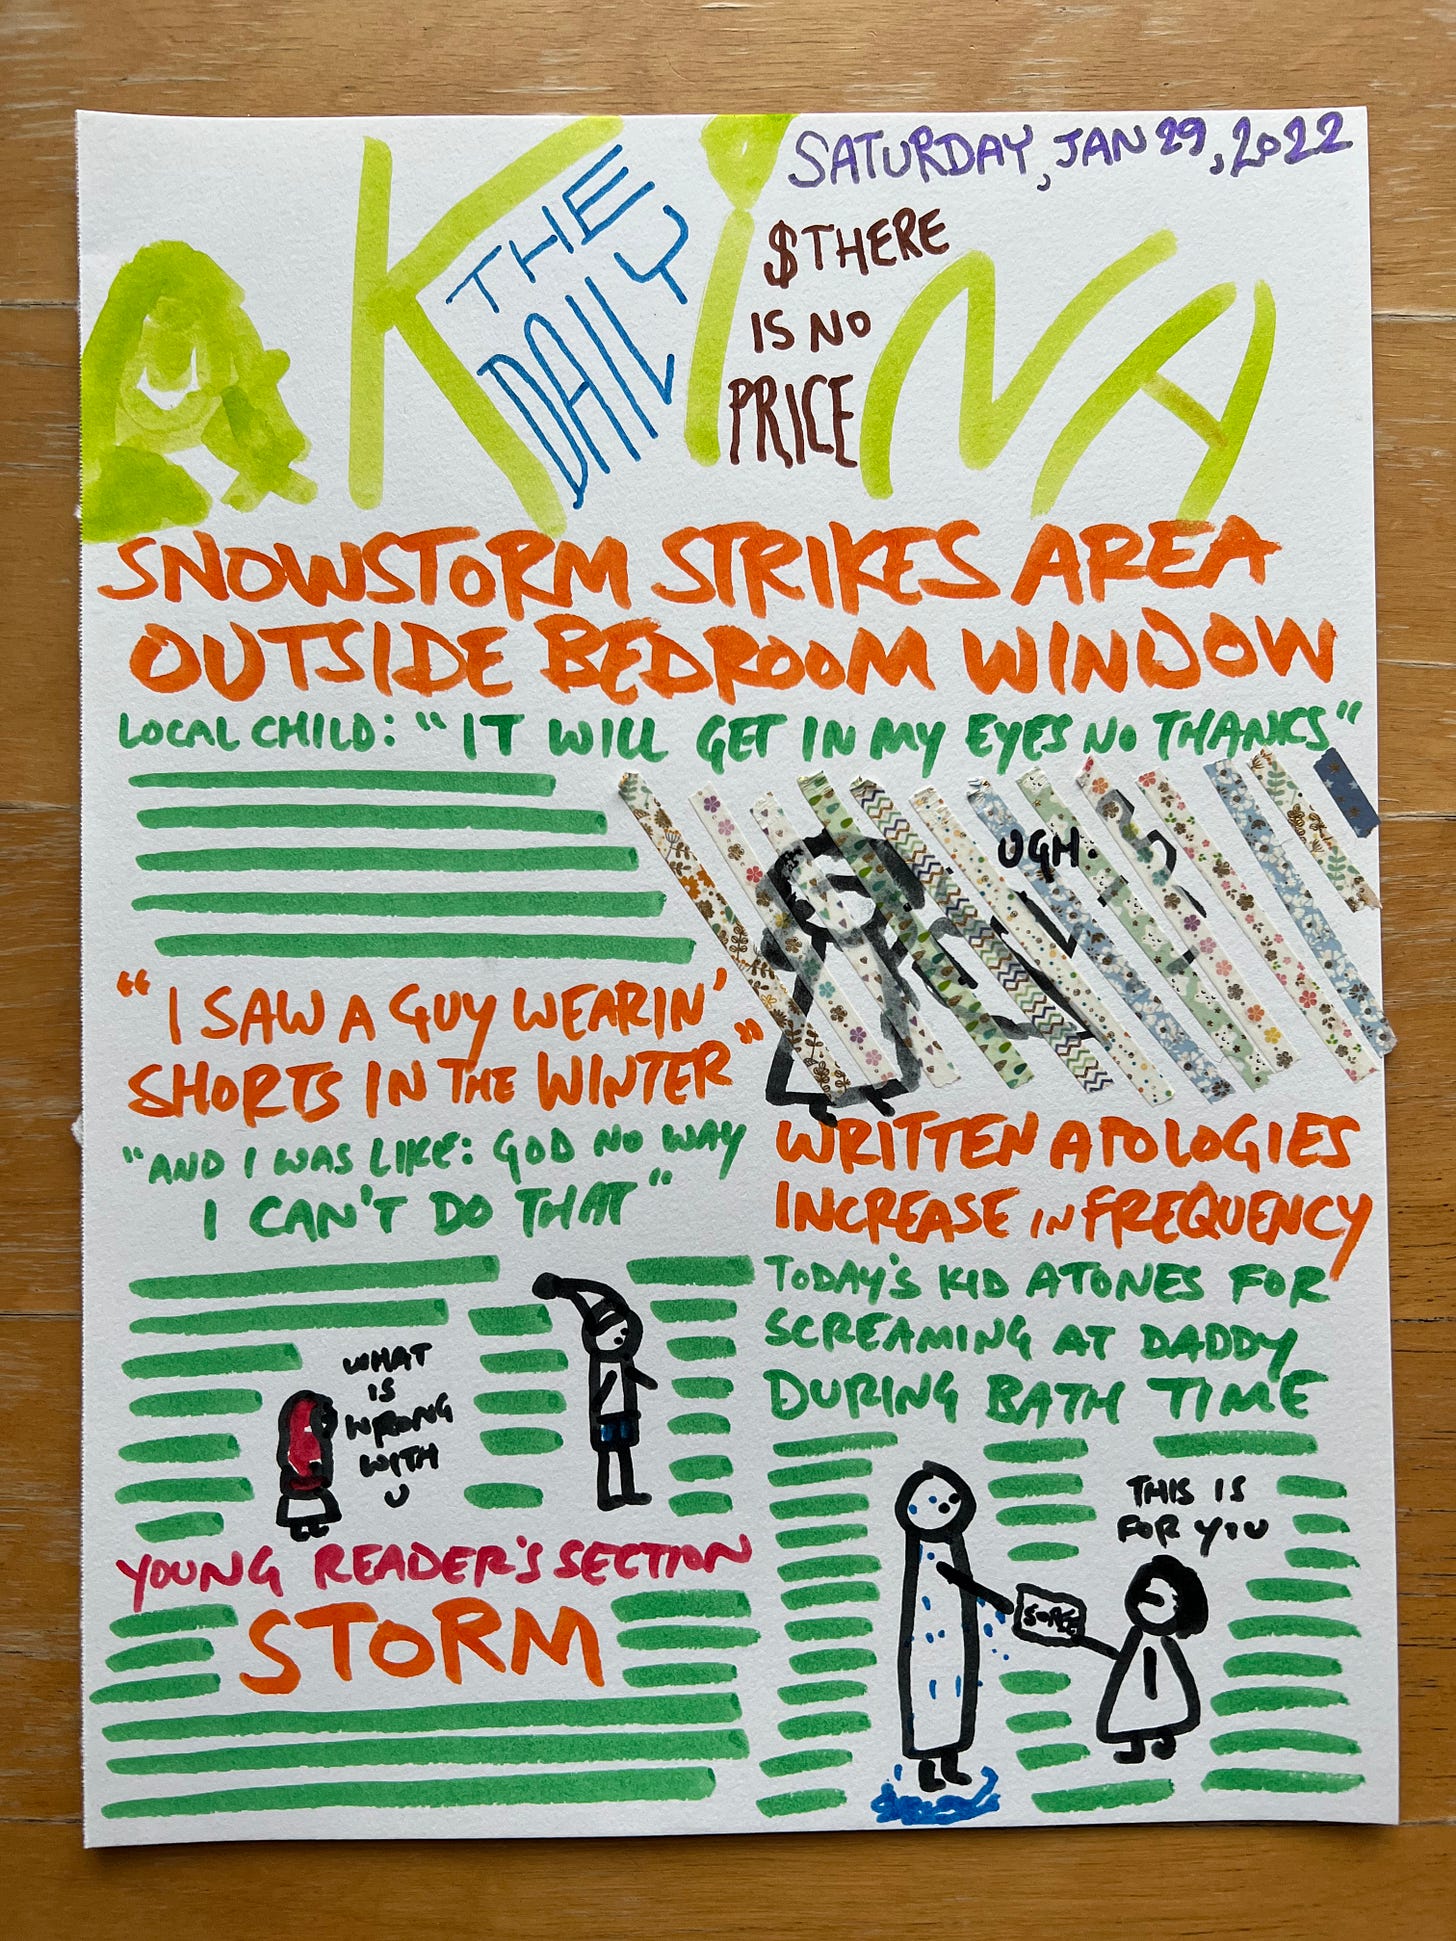 THE
DAILY
AKINA
SATURDAY, JAN 29, 2022
$THERE
IS NO
PRICE
SNOWSTORM STRIKES AREA
OUTSIDE BEDROOM WINDOW
LOCAL CHILD: "IT WILL GET IN MY EYES NO THANKS"
UGH.
"I SAW A GUY WEARIN'
SHORTS IN THE WINTER"
"AND I WAS LIKE: GOD NO WAY
I CAN'T DO THAT"
WHAT
IS
WRONG
WITH
U
YOUNG READER'S SECTION
STORM
WRITTEN APOLOGIES
INCREASE IN FREQUENCY
TODAY'S KID ATONES FOR
SCREAMING AT DADDY
DURING BATH TIME
THIS IS
FOR YOU